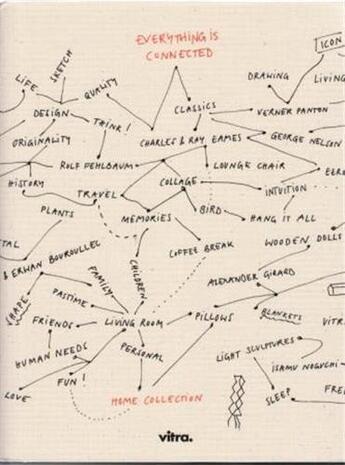 EVERYTHING IS
CONNECTED
ICON
SKETCH
LIFE
QUALITY
DRAWING
LIVING
DESIGN
CLASSICS
VERNER PANTON
THINK!
ORIGINALITY
CHARLES & RAY EAMES
GEORGE NELSON
ROLF FEHLBAUM
LOUNGE CHAIR
EERO
HISTORY
TRAVEL
COLLAGE
INTUITION
PLANTS
MEMORIES
BIRD
HANG IT ALL
TAL
& ERWAN BOUROULLEC
COFFEE BREAK
WOODEN DOLLS
SHAPE
FAMILY
CHILDREN
ALEXANDER GIRARD
PASTIME
FRIENDS
LIVING ROOM
PILLOWS
BLANKETS
VITR
HUMAN NEEDS
PERSONAL
LIGHT SCULPTURES
ISAMU NOGUCHI
FUN!
LOVE
HOME COLLECTION
SLEEP
FRE
vitra.